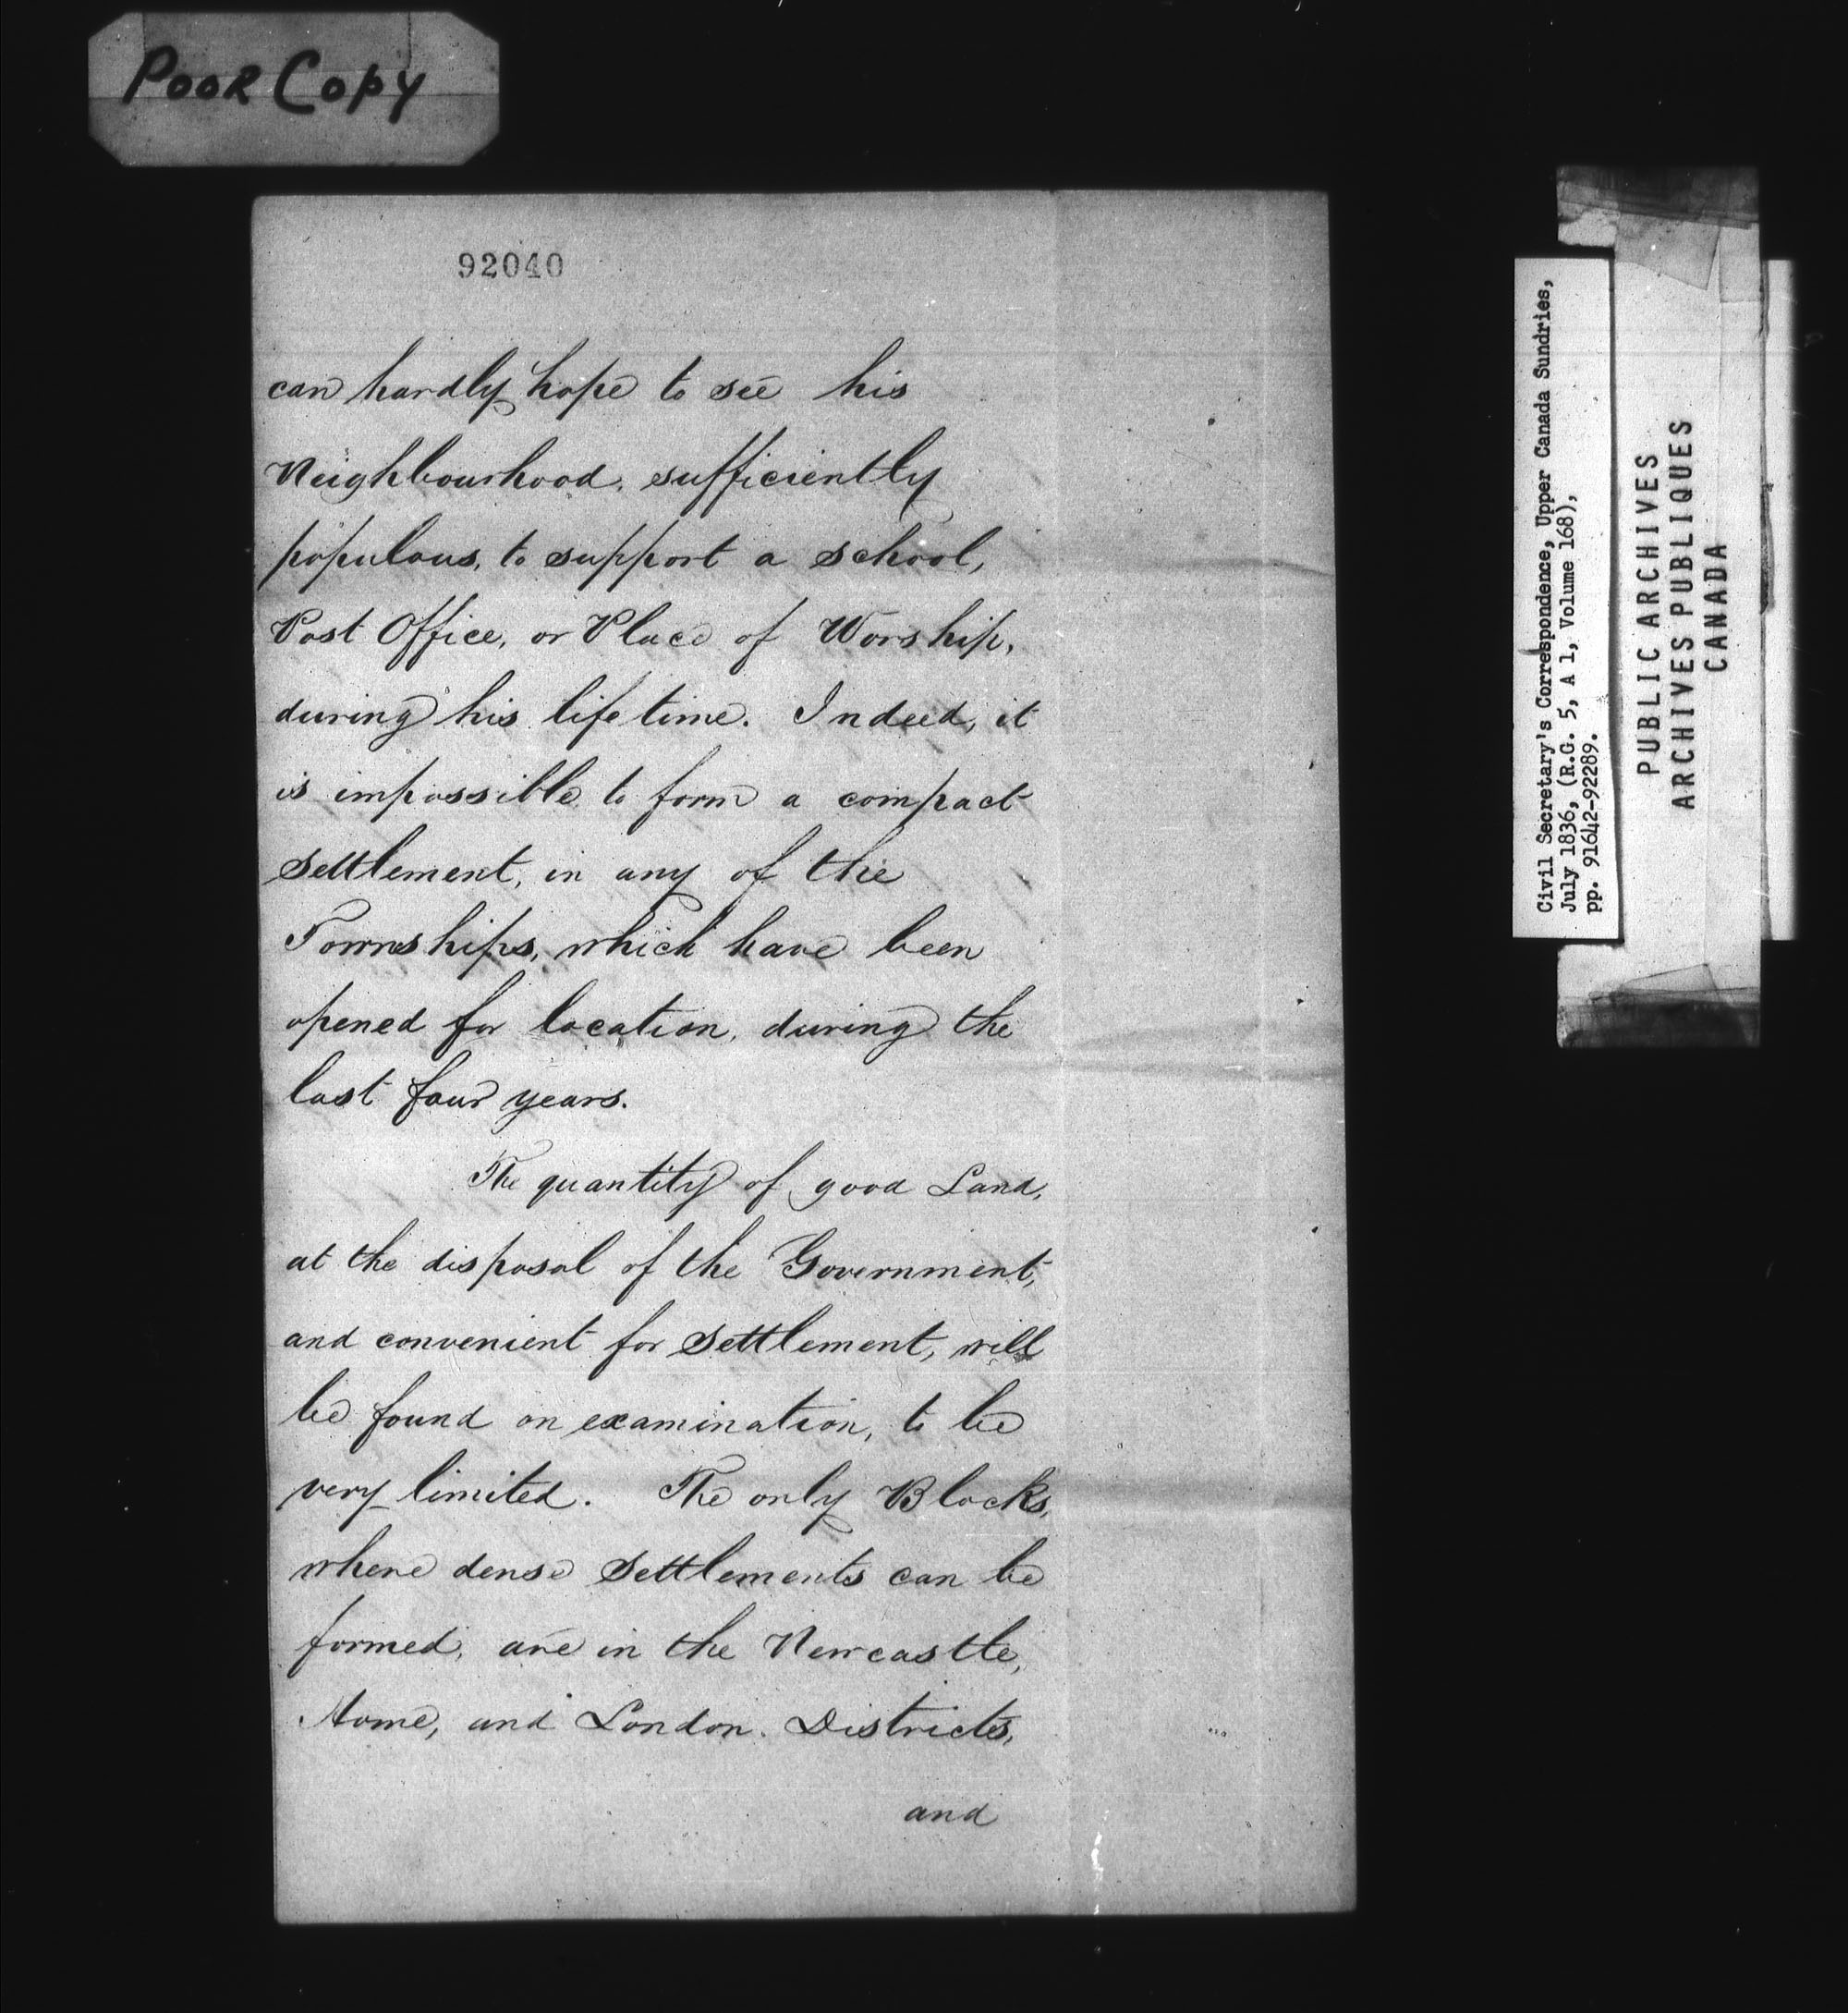 Poor Copy
92040
can hardly hope to see his
Neighbourhood, sufficiently
populous, to support a school,
Post Office, or Place of Worship,
during his life time. Indeed, it
is impossible to form a compact
Settlement, in any of the
Townships, which have been
opened for location, during the
last four years.
The quantity of good Land,
at the disposal of the Government,
and convenient for Settlement, will
be found on examination, to be
very limited. The only Blocks,
where dense Settlements can be
formed, are in the Newcastle,
Home, and London Districts,
and
Civil Secretary's Correspondence, Upper Canada Sundries,
July 1836, (R.G. 5, A 1, Volume 168),
pp. 91642-92289.
PUBLIC ARCHIVES
ARCHIVES PUBLIQUES
CANADA